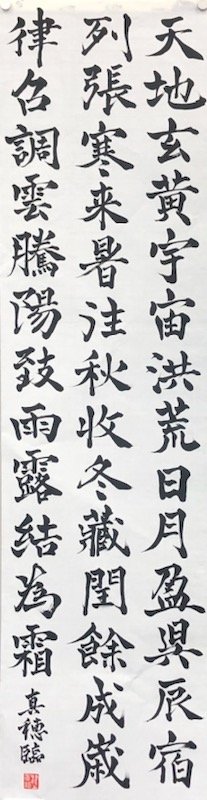 天地玄黄宇宙洪荒日月盈昃辰宿
列張寒来暑往秋収冬蔵閏餘成歳
律呂調雲騰陽致雨露結為霜
真穂臨